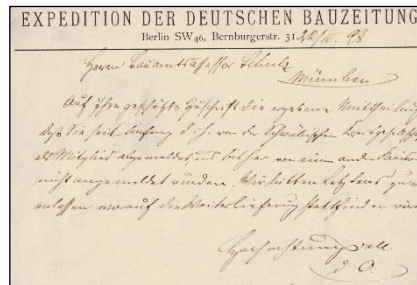 EXPEDITION DER DEUTSCHEN BAUZEITUNG
Berlin SW46, Bernburgerstr. 31
Herrn Bauamtsassessor Schulz
München
Auf Ihre geschätzte Zuschrift die ergebene Mittheilung
daß Sie seit Anfang d. J. von der Schwäbischen Kreisgesellsch
als Mitglied abgemeldet und bisher von einer anderen
nicht angemeldet wurden. Wir bitten letzteres zu ver
anlassen worauf die Weiterlieferung stattfinden wird
Hochachtungsvoll
d. O.